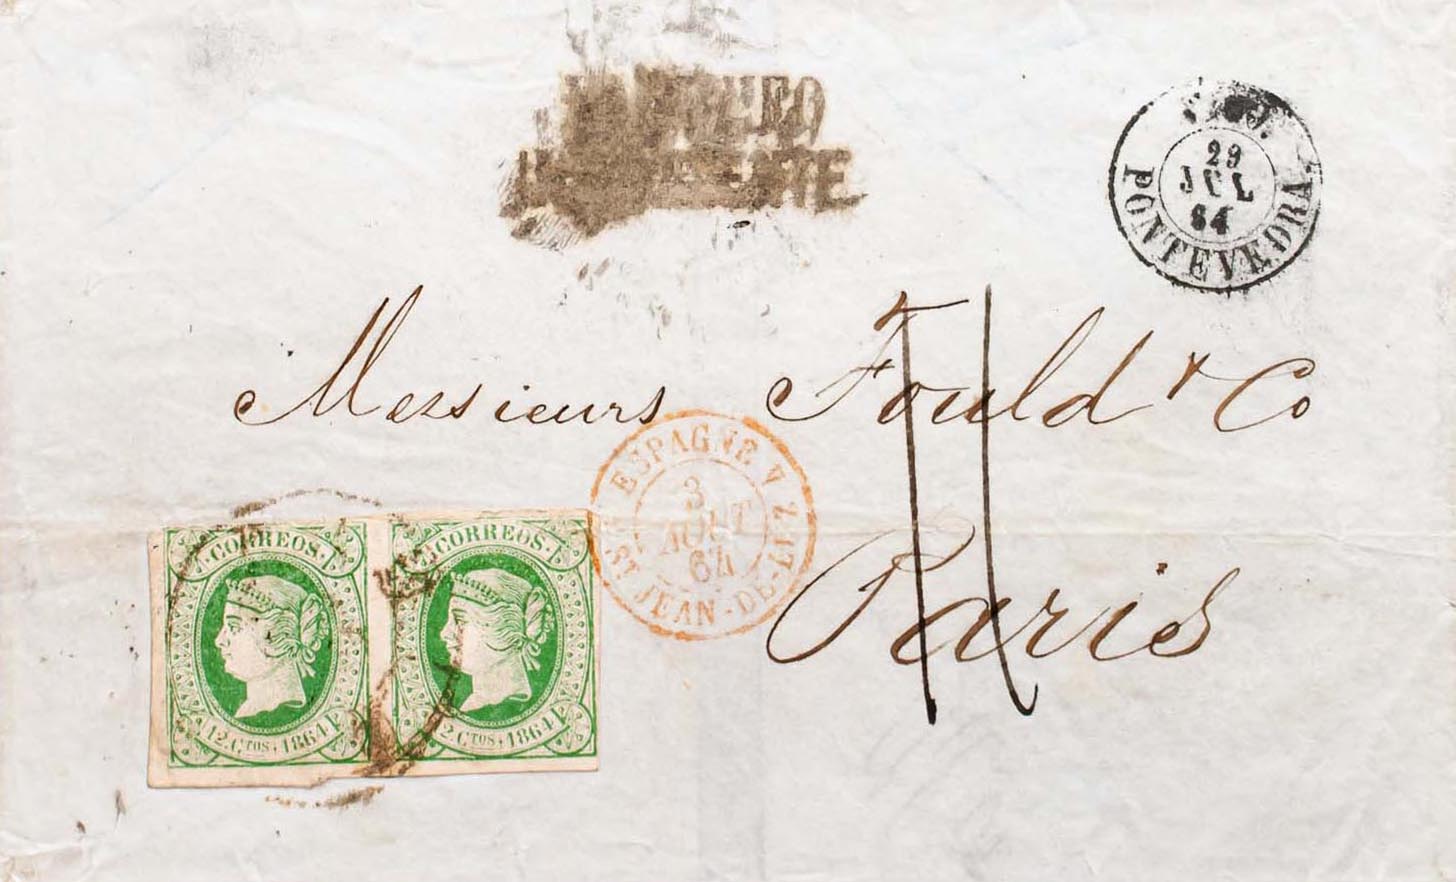 29
JUL
64
PONTEVEDRA.
Messieurs Fould & Co
ESPAGNE
3
AOUT
64
ST JEAN-DE-LUZ
Paris
CORREOS.
CORREOS.
12.CTOS.1864
2.CTOS.1864